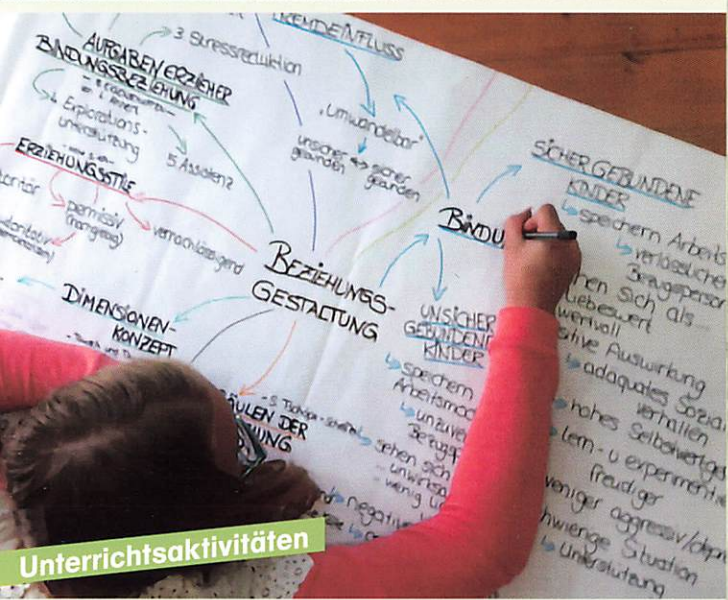 FREMDEINFLUSS
3 Stressreduktion
AUFGABEN ERZIEHER
BINDUNGSBEZIEHUNG
4 Explorations-
unterstützung
5 Assistenz
"Umwandelbar"
unsicher ↔ sicher
gebunden gebunden
ERZIEHUNGSSTILE
permissiv
(nachgiebig)
vernachlässigend
BEZIEHUNGS-
GESTALTUNG
DIMENSIONEN-
KONZEPT
SÄULEN DER
BINDU
SICHER GEBUNDENE
KINDER
speichern Arbeits
verlässliche
Bezugsperso
hen sich als...
liebeswert
wertvoll
sitive Auswirkung
adäquates Sozial
verhalten
hohes Selbstwertge
lern- u experiment
freudiger
weniger aggressiv/dep
hwierige Situation
Unterstützung
UNSICHER
GEBUNDENE
KINDER
speichern
Arbeitsmod
unzuve
Bezugsp
sehen sich
wenig
negative
Unterrichtsaktivitäten